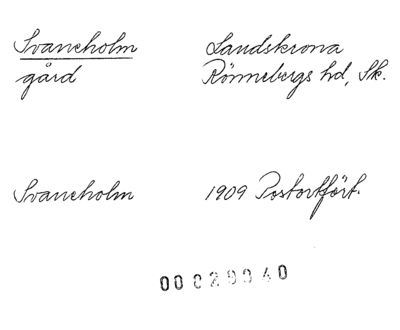 Svaneholm Landskrona
gård Rönnebergs hd, Sk.
Svaneholm 1909 Postortfört.